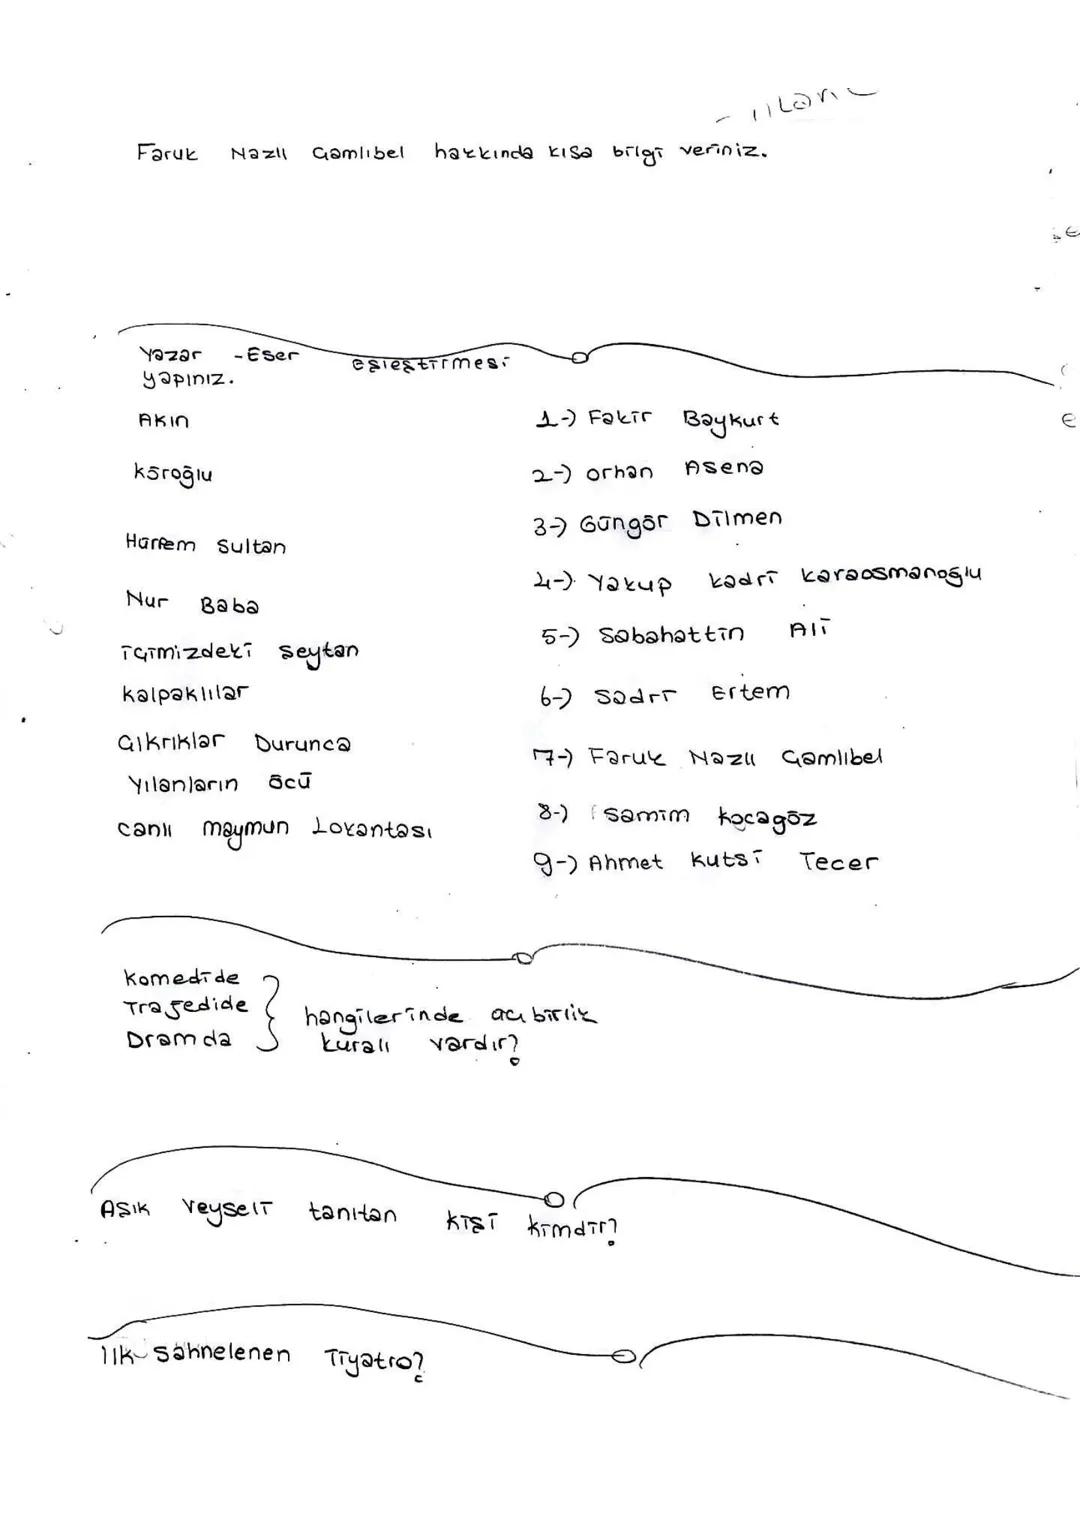 Faruk Nazlı Çamlıbel hakkında kısa bilgi veriniz.
Yazar - Eser eşleştirmesi
yapınız.
Akın
köroğlu
Hürrem Sultan
Nur Baba
içimizdeki şeytan
kalpaklılar
Çıkrıklar Durunca
Yılanların öcü
canlı maymun Lokantası
1-) Fakir Baykurt
2-) orhan Asena
3-) Güngör Dilmen
4-) Yakup kadri karaosmanoğlu
5-) Sabahattin Ali
6-) Sadri Ertem
7-) Faruk Nazlı Çamlıbel
8-) Samim kocagöz
9-) Ahmet kutsi Tecer
Komedide
Trajedide
Dramda
hangilerinde üç birlik
kuralı vardır?
Aşık Veyseli tanıtan kişi kimdir?
ilk sahnelenen Tiyatro?